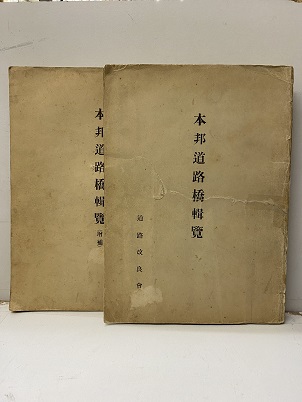 本邦道路橋輯覽
道路改良會
本邦道路橋輯覽
增補